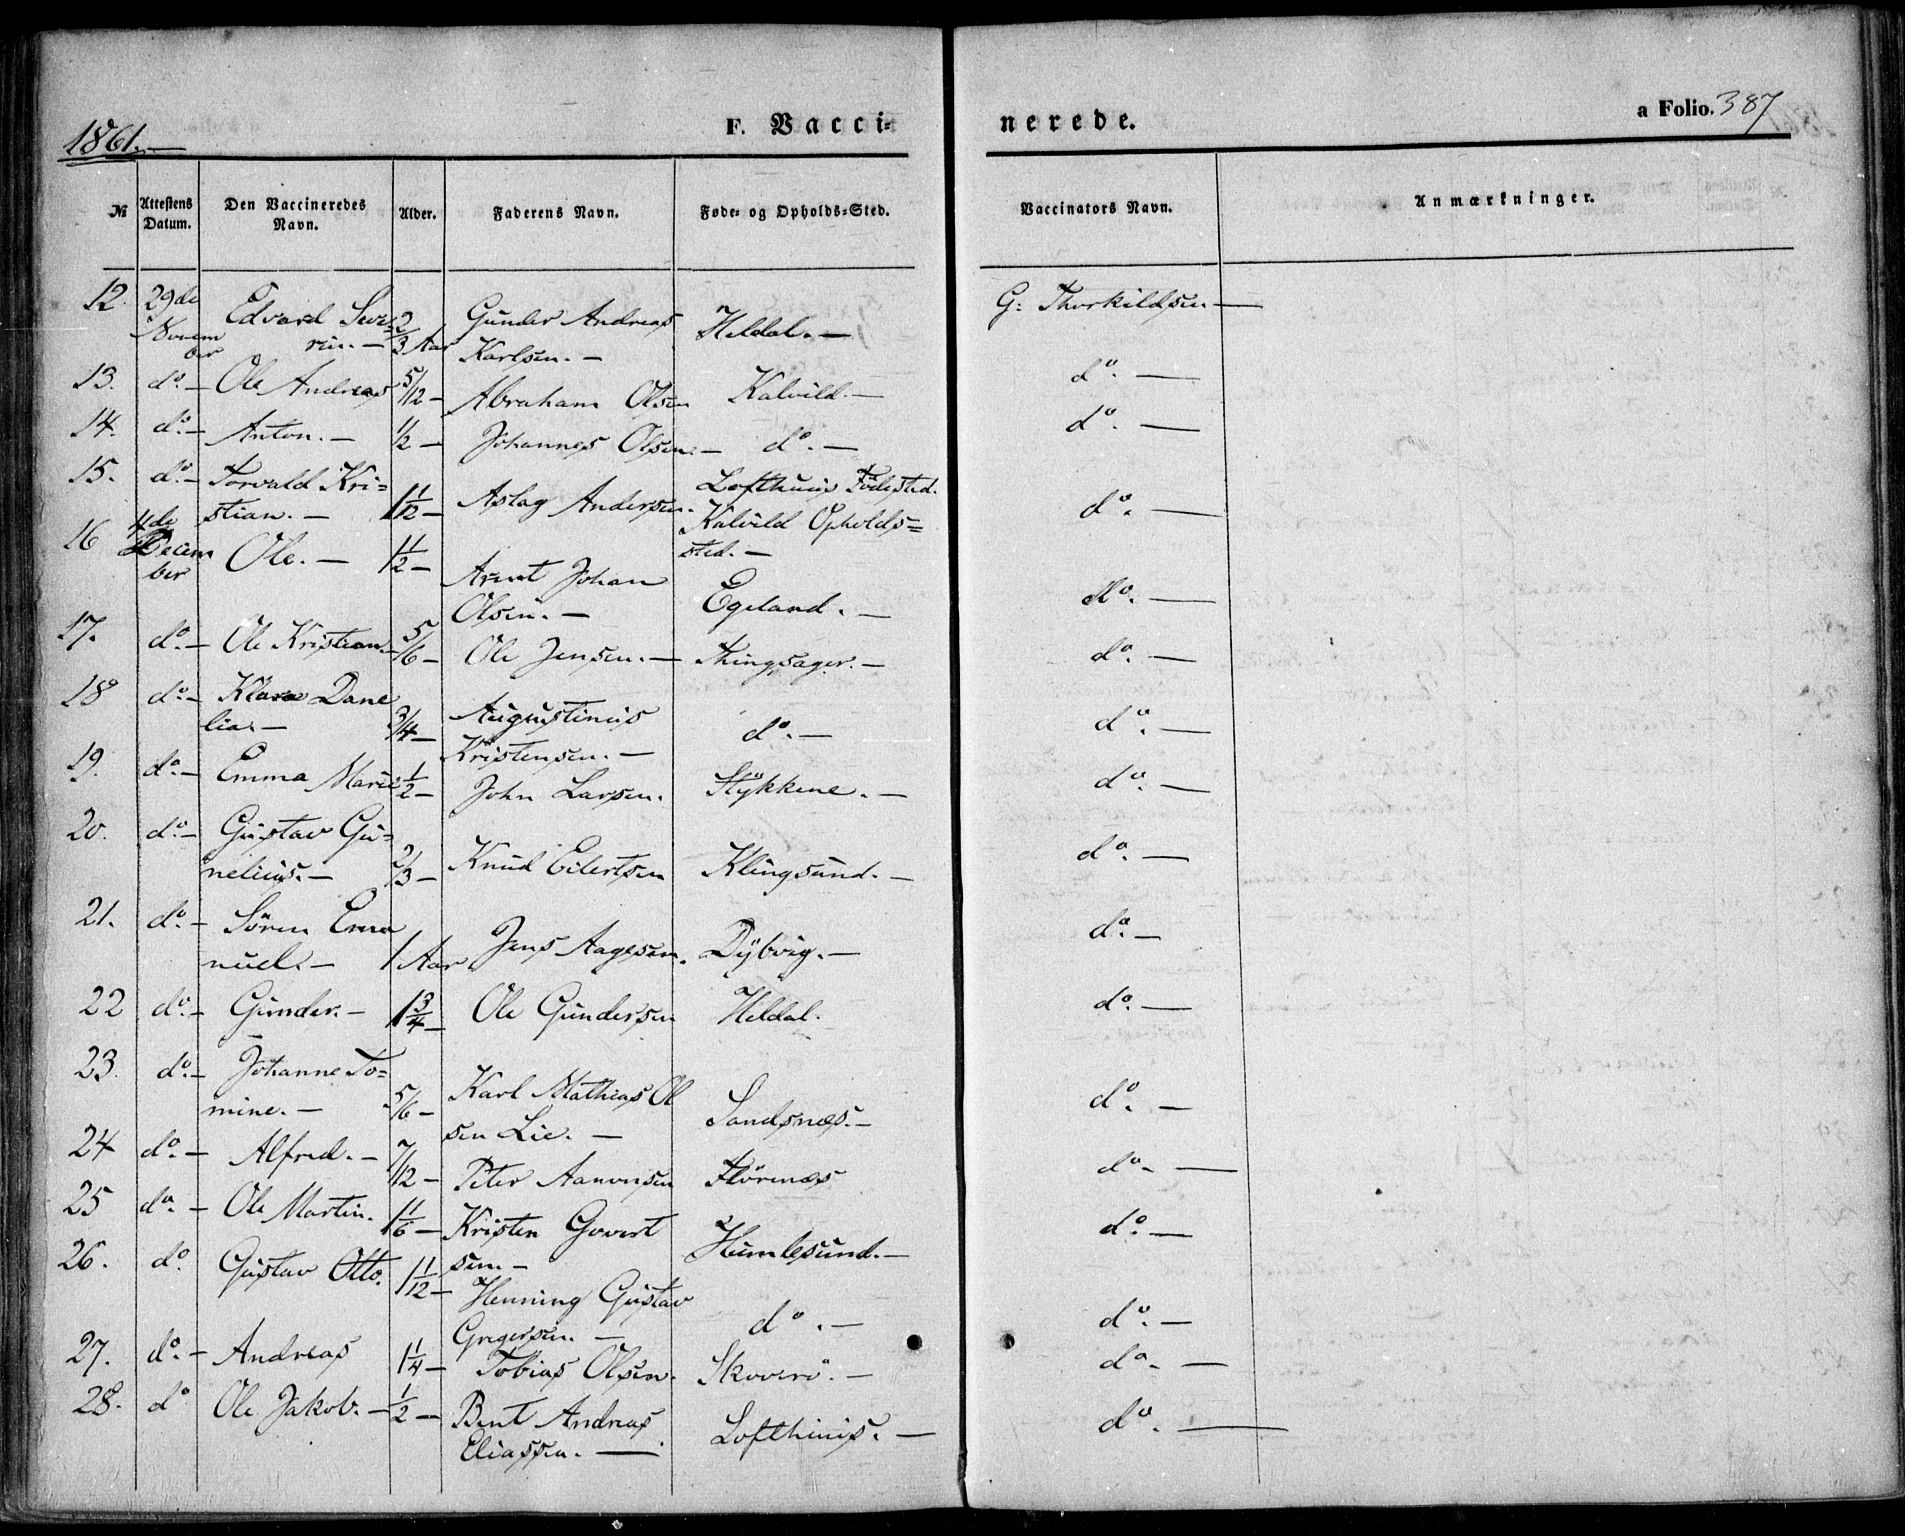 1861.—
F. Vacci-
nerede.
a Folio. 387
№
Attestens Datum.
Den Vaccineredes Navn.
Alder.
Faderens Navn.
Føde- og Opholds-Sted.
Vaccinators Navn.
Anmærkninger.
12. 29de Edvard Seve= 2/3 Aar Gunder Andreas Heldal.— G: Thorkildsen—
Novem ber rin.— Karlsen.—
13. do.— Ole Andreas 5/12— Abraham Olsen Kalvild.— do.—
14. do.— Anton.— 1/2— Johannes Olsen.— do.— do.—
15. do.— Torvald Kri= 1 1/12— Aslag Andersen. Lofthuus Födested. do.—
stian.— Kalvild Opholds=
sted.—
16 4de Decem Ole.— 1 1/2— Arent Johan Egeland.— do.—
ber Olsen.—
17. do.— Ole Kristian.— 5/6— Ole Jensen.— Thingsager.— do.—
18 do.— Klara Dane 3/4— Augustinus do.— do.—
lia.— Kristensen.—
19. do.— Emma Marie 1/2— John Larsen. Stÿkkene.— do.—
20. do.— Gustav Gu= 2/3— Knud Eilertsen Klingsund.— do.—
nelius.—
21. do.— Sören Ema 1 Aar Jens Aagesen. Dÿbvig.— do.—
nuel.—
22 do.— Gunder.— 1 3/4— Ole Gundersen Heldal. do.—
23. do.— Johanne To= 5/6— Karl Mathias Ol Sandsnæs.— do.—
mine.— sen Lie.—
24 do.— Alfred.— 7/12— Peter Aanonsen Flörenæs do.—
25 do.— Ole Martin. 1 1/6— Kristen Govert Humlesund.— do.—
sen.—
26. do. Gustav Otto. 1 1/12— Henning Gustav do.— do.—
Gregersen.—
27. do.— Andreas 1 1/4— Tobias Olsen. Skoverö.— do.—
28. do Ole Jakob.— 1/2— Bent Andreas Lofthuus.— do.—
Eliassen.—